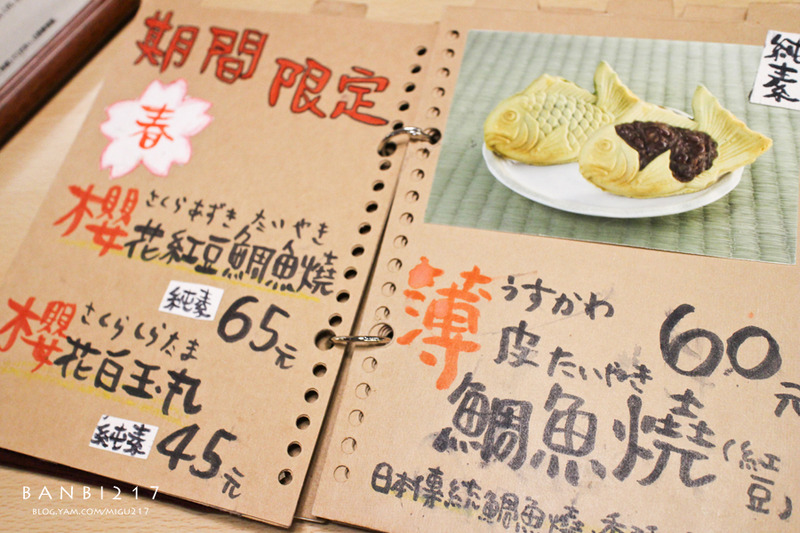 期間限定
春
さくらあずき たいやき
櫻花紅豆鯛魚燒
純素 65元
さくらしらたま
櫻花白玉丸
純素 45元
純素
うすかわ
薄皮 たいやき
鯛魚燒(紅豆)
60元
日本傳統鯛魚燒,香
BANBI217
BLOG.YAM.COM/MIGU217